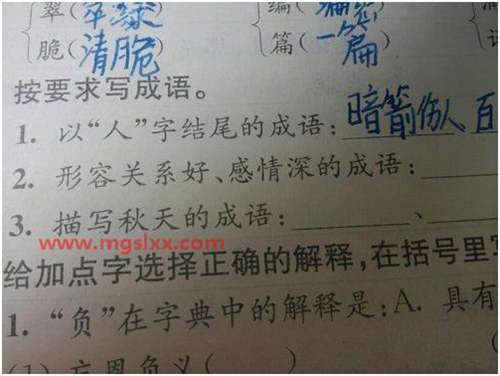 翠(翠绿) 编(
脆(清脆) 篇(一篇)
按要求写成语。
1. 以“人”字结尾的成语：暗箭伤人 百
2. 形容关系好、感情深的成语：
3. 描写秋天的成语：、
www.mgslxx.com
给加点字选择正确的解释，在括号里写
1. “负”在字典中的解释是：A. 具有
(1) 忘恩负义( )